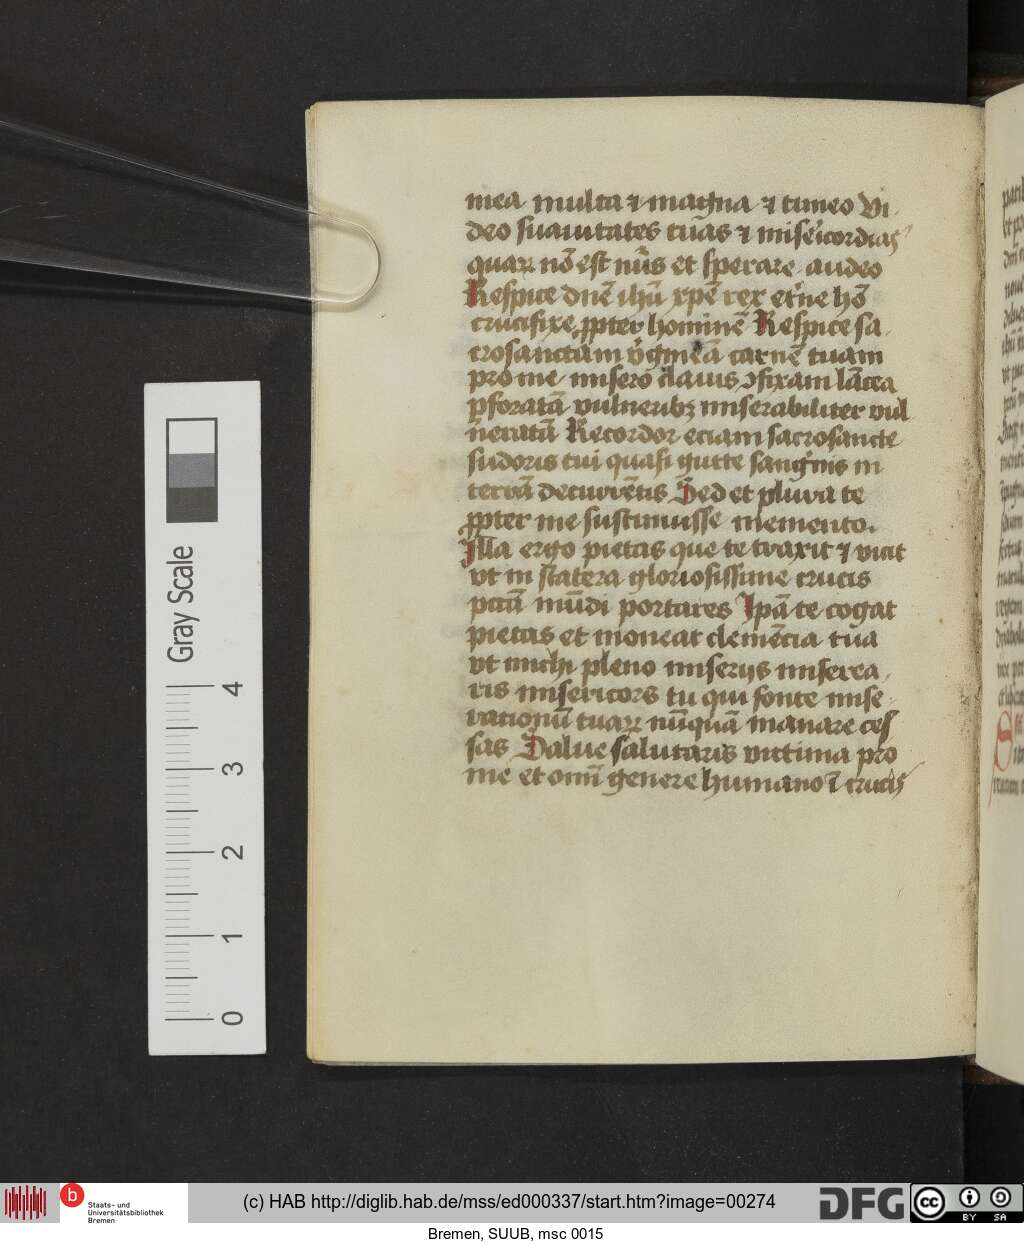 mea multa ⁊ magna ⁊ timeo Vi
deo suauitates tuas ⁊ mis'icordias
quaꝝ nō est nu᷒s et sperare audeo
Respice dnē ihū xpē rex et'ne hō
crucifixe ꝓpter hominē Respice sa
crosanctam v'gineā carnē tuam
pro me misero clauis ↄfixam lācea
ꝑforatā vulneribꝫ miserabiliter vul
neratā Recordor eciam sacrosancte
sudoris tui quasi gutte sangīnis in
terrā decurrētis Sed et plura te
ꝓpter me sustinuisse memento.
Illa ergo pietas que te traxit ⁊ vicit
vt in statera gloriosissime crucis
pctā mūdi portares Ipā te cogat
pietas et moneat clemēcia tua
vt michi pleno miserijs miserea
ris misericors tu qui fonte mise
rationū tuaꝝ nūquā manare ces
sas Salue salutaris victima pro
me et omī genere humano ī crucis
Gray Scale
4
3
2
1
0
b
Staats- und
Universitätsbibliothek
Bremen
(c) HAB http://diglib.hab.de/mss/ed000337/start.htm?image=00274
DFG
cc
BY
SA
Bremen, SUUB, msc 0015